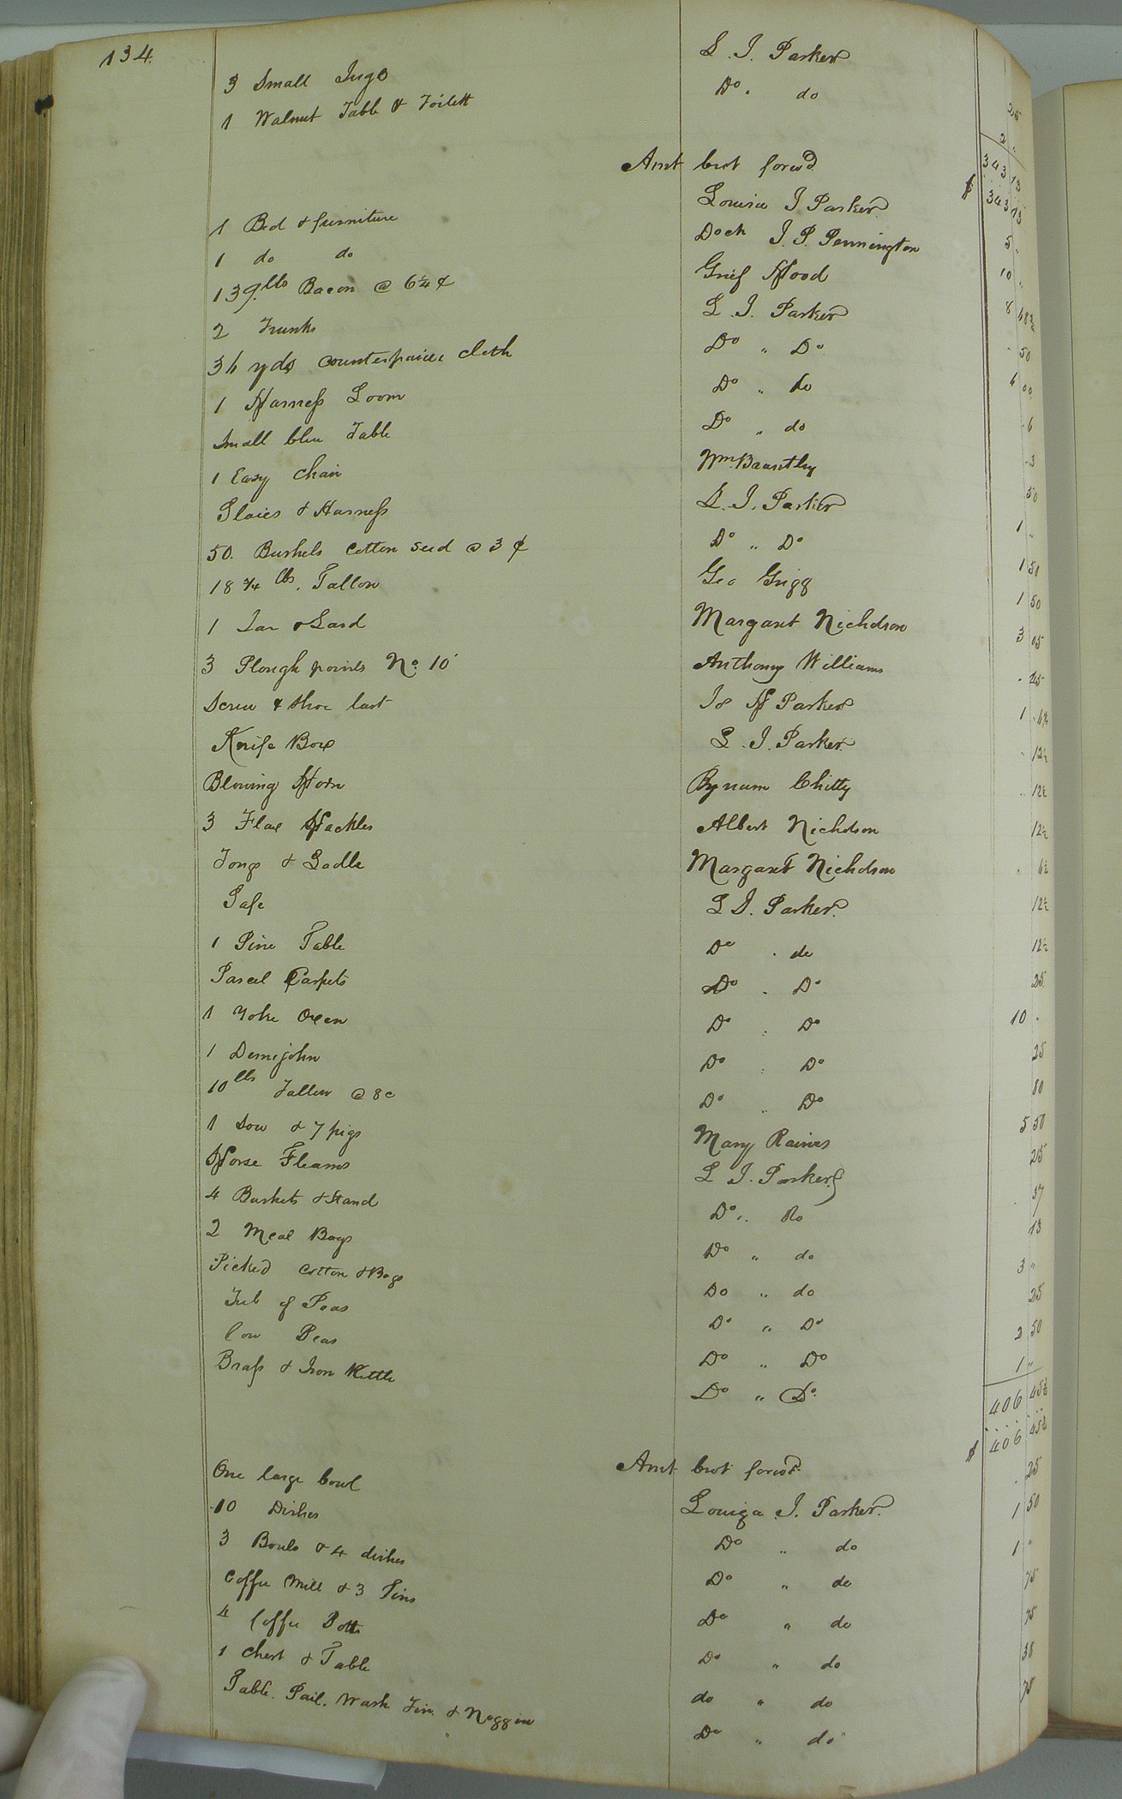 134.
3 Small Jugs L. J. Parker 25
1 Walnut Table & Toilett Do. do 2 "
343 13
Amt brot forwd. $ 343 13
1 Bed & furniture Louisa J Parker 5 "
1 do do Dock J. P. Pennington 10 "
139 lbs Bacon @ 6¼ ¢ Grief Hood 8
2 Trunks L. J. Parker 50
yds counterpaine cloth Do " Do
1 Harness Loom Do " do 6
Small blue Table Do " do 3
1 Easy Chair Wm. 50
Slaies & Harness L. J. Parker 1 "
50. Bushels Cotton seed @ 3 ¢ Do " Do 1 50
18 ¾ lbs. Tallow Geo Grigg 1 50
1 Jar & Lard Margaret Nicholson 3 05
3 Plough points No. 10 Anthony Williams 25
Screw & shoe last H Parker 1
Knife Box L. J. Parker. 12½
Blowing Horn Bynum Chitty 12½
3 Flax Hackles Albert Nicholson 12½
Tongs & Ladle Margaret Nicholson 6¼
Safe L J. Parker. 12½
1 Pine Table Do . do 12½
Parcel Carpets Do . Do 25
1 Yoke Oxen Do : Do 10 "
1 Demijohn Do : Do 25
10 lbs Tallow @ 8c Do " Do 80
1 Sow & 7 pigs Mary Raines 5 50
Horse Fleams L J. Parker 25
4 Baskets & Stand Do " Do 37
2 Meal Bags Do " do 13
Picked Cotton & Bags Do " do 3 "
Tub of Peas Do " Do 25
Cow Peas Do " Do 2 50
Brass & Iron Kettle Do " Do. 1 "
406 45½
Amt brot forwd. $ 406 45½
One large bowl Louiza J. Parker. 25
10 Dishes Do " do 1 50
3 Bowls & 4 dishes Do " do 1 "
Coffee Mill & 3 Tins Do " do 75
4 Coffee Potts Do " do 75
1 Chest & Table do " do 38
Table. Pail. Wash Tin. & Noggin Do " do 75